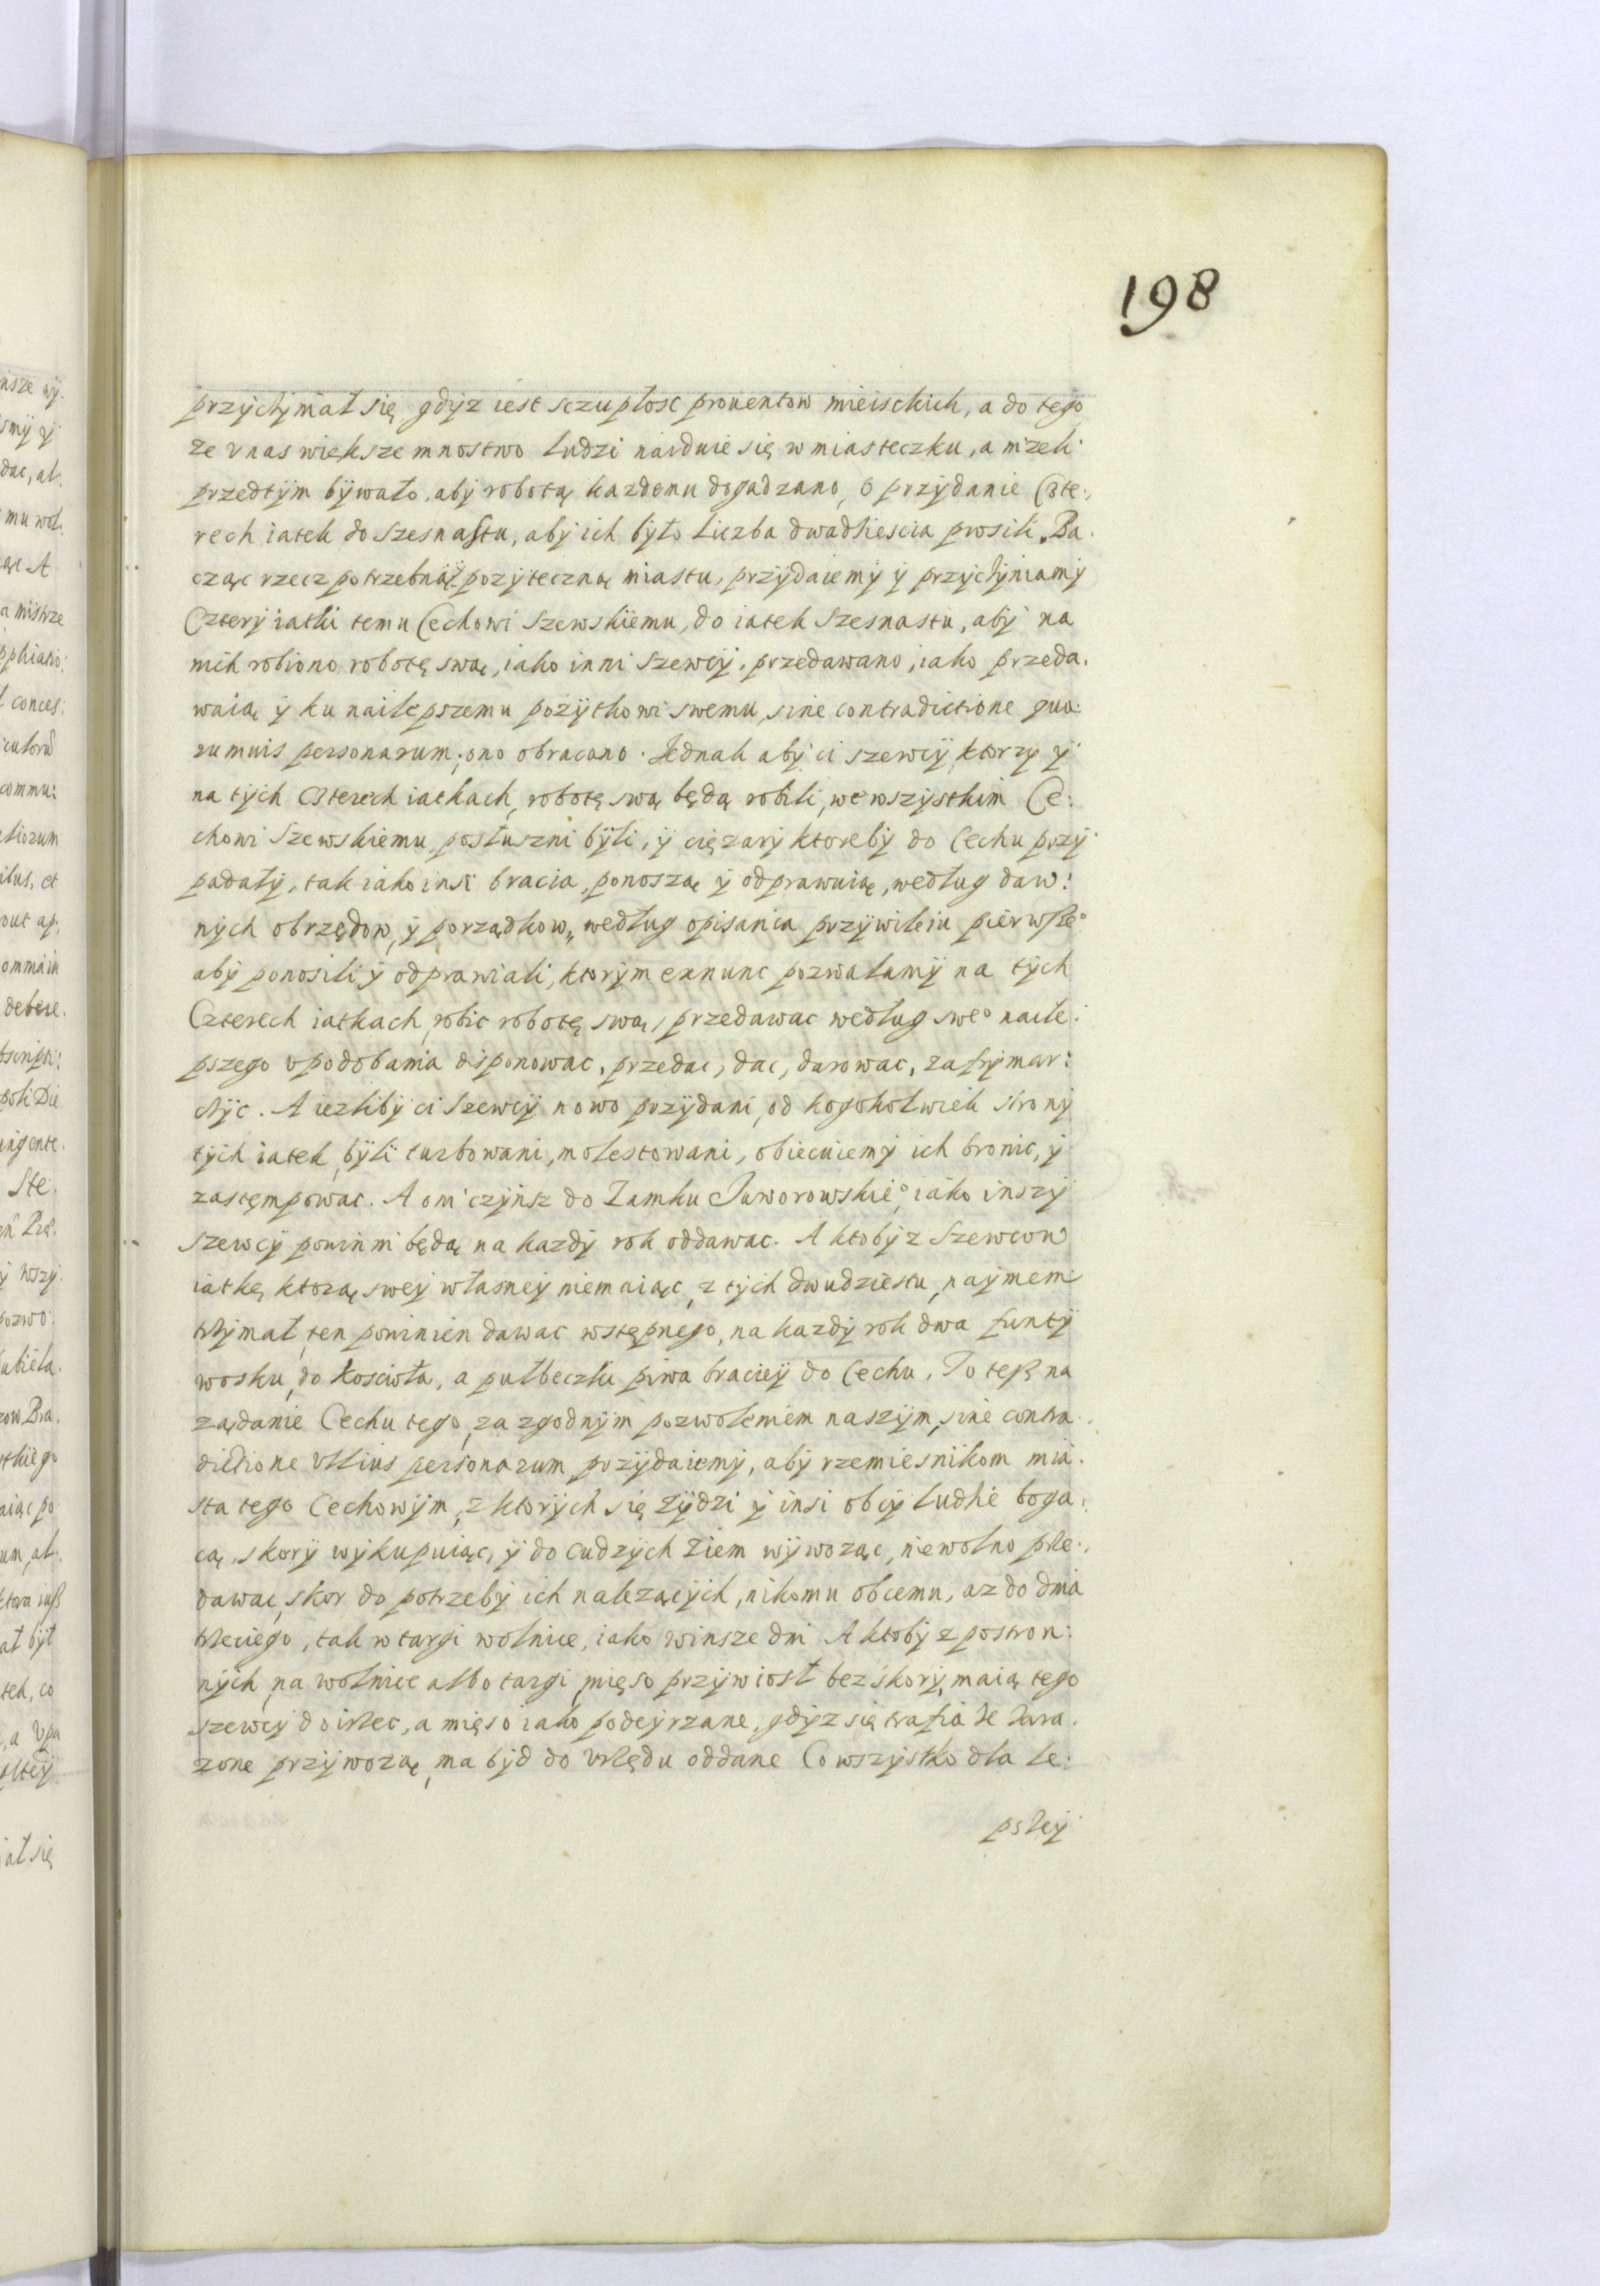 198
przyczyniał się, gdyz iest sczupłosc prouentow mieisckich, a do tego
ze v nas większe mnostwo ludzi naiduie się w miasteczku, a nizeli
przedtym bywało, aby robotą kazdemu dogadzano, o przydanie Czte:
rech iatek do szesnastu, aby ich było liczba dwadziescia prosili. Ba
cząc rzecz potrzebną y pozyteczną miastu, przydaiemy y przyczyniamy
Cztery iatki temu Cechowi Szewskiemu, do iatek szesnastu, aby na
nich robiono robotę swą, iako inni szewcy, przedawano, iako przeda.
waią y ku nailepszemu pozytkowi swemu, sine contradictione quo:
rumuis personarum, ono obracano. Jednak aby ci szewcy ktorzy y
na tych czterech iatkach, robotę swą będą robili, we wszystkim Ce:
chowi Szewskiemu posłuszni byli, y cięzary ktoreby do Cechu przy
padały, tak iako insi bracia, ponoszą y odprawuią, według daw:
nych obrzędow, y porządkow, według opisania przywileiu pierwsze°
aby ponosili y odprawiali, ktorym exnunc pozwalamy na tych
Czterech iatkach robic robotę swą, przedawac według swe° naile:
pszego vpodobania disponowac, przedac, dac, darowac, zafrymar:
czyc. A iezliby ci Szewcy nowo przydani, od kogokolwiek strony
tych iatek byli turbowani, molestowani, obiecuiemy ich bronic, y
zastempowac. A oni czynsz do Zamku Jaworowskie°, iako inszy
szewcy powinni będą na kazdy rok oddawac. A ktoby z Szewcow
iatkę ktorą swey własney niemaiąc, z tych dwudziestu, naymem
trzymał, ten powinien dawac wstępnego, na kazdy rok dwa funty
wosku, do koscioła, a pułbeczki piwa braciey do Cechu. To tesz na
ządanie Cechu tego, za zgodnym pozwoleniem naszym, sine contra
dictione vllius personarum przydaiemy, aby rzemiesnikom mia.
sta tego Cechowym, z ktorych się zydzi y insi obcy ludzie boga:
cą, skory wykupuiąc, y do cudzych ziem wywoząc, niewolno prze:
dawac, skor do potrzeby ich nalezących, nikomu obcemu, az do dnia
trzeciego, tak w targi wolnice, iako w insze dni A ktoby z postron:
nych na wolnice albo targi mięso przywiosł bez skory, maią tego
szewcy doirzec, a mięso iako podeyrzane, gdyz się trafia ze zara.
zone przywozą, ma byd do vrzędu oddane Co wszystko dla le:
pszey